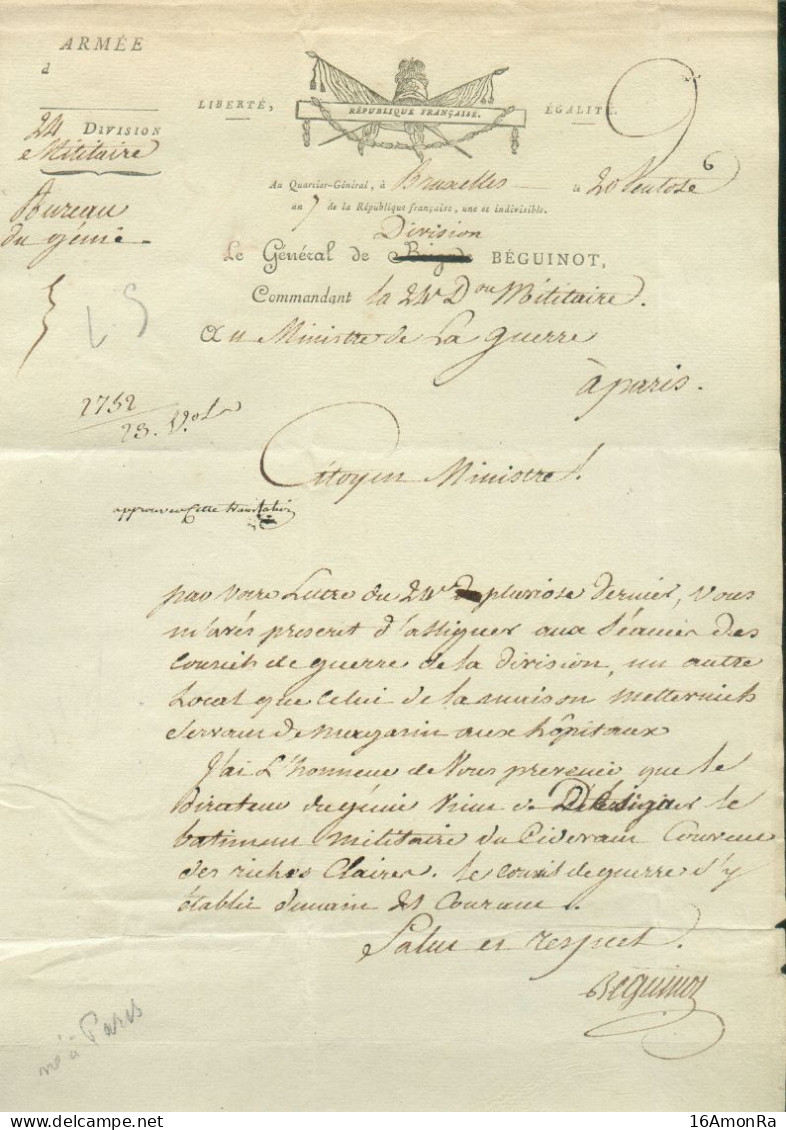 ARMÉE
d
LIBERTÉ, RÉPUBLIQUE FRANÇAISE. ÉGALITÉ.
24 DIVISION
Militaire
Bureau
du génie
Au Quartier-Général, à Bruxelles le 20 Ventose 6
an 7 de la République française, une et indivisible.
Division
Le Général de Brigade BÉGUINOT,
Commandant la 24e Don Militaire.
Au Ministre de La guerre
à paris.
L. S
2752
23. V.
Citoyen Ministre.
approuver cette translation
par votre Lettre du 24e pluviose dernier, vous
m'avés prescrit d'assigner aux séances des
Conseils de guerre de la division, un autre
Local que celui de la maison metternich
servant de magasin aux hôpitaux
J'ai L'honneur de vous prevenir que le
Directeur du génie vient de Désigner le
batiment militaire du Cidevant Couvent
des riches Claires. le conseil de guerre s'y
établit demain 21 Courant.
Salut et respect.
Beguinot
né à Paris
16AmonRa